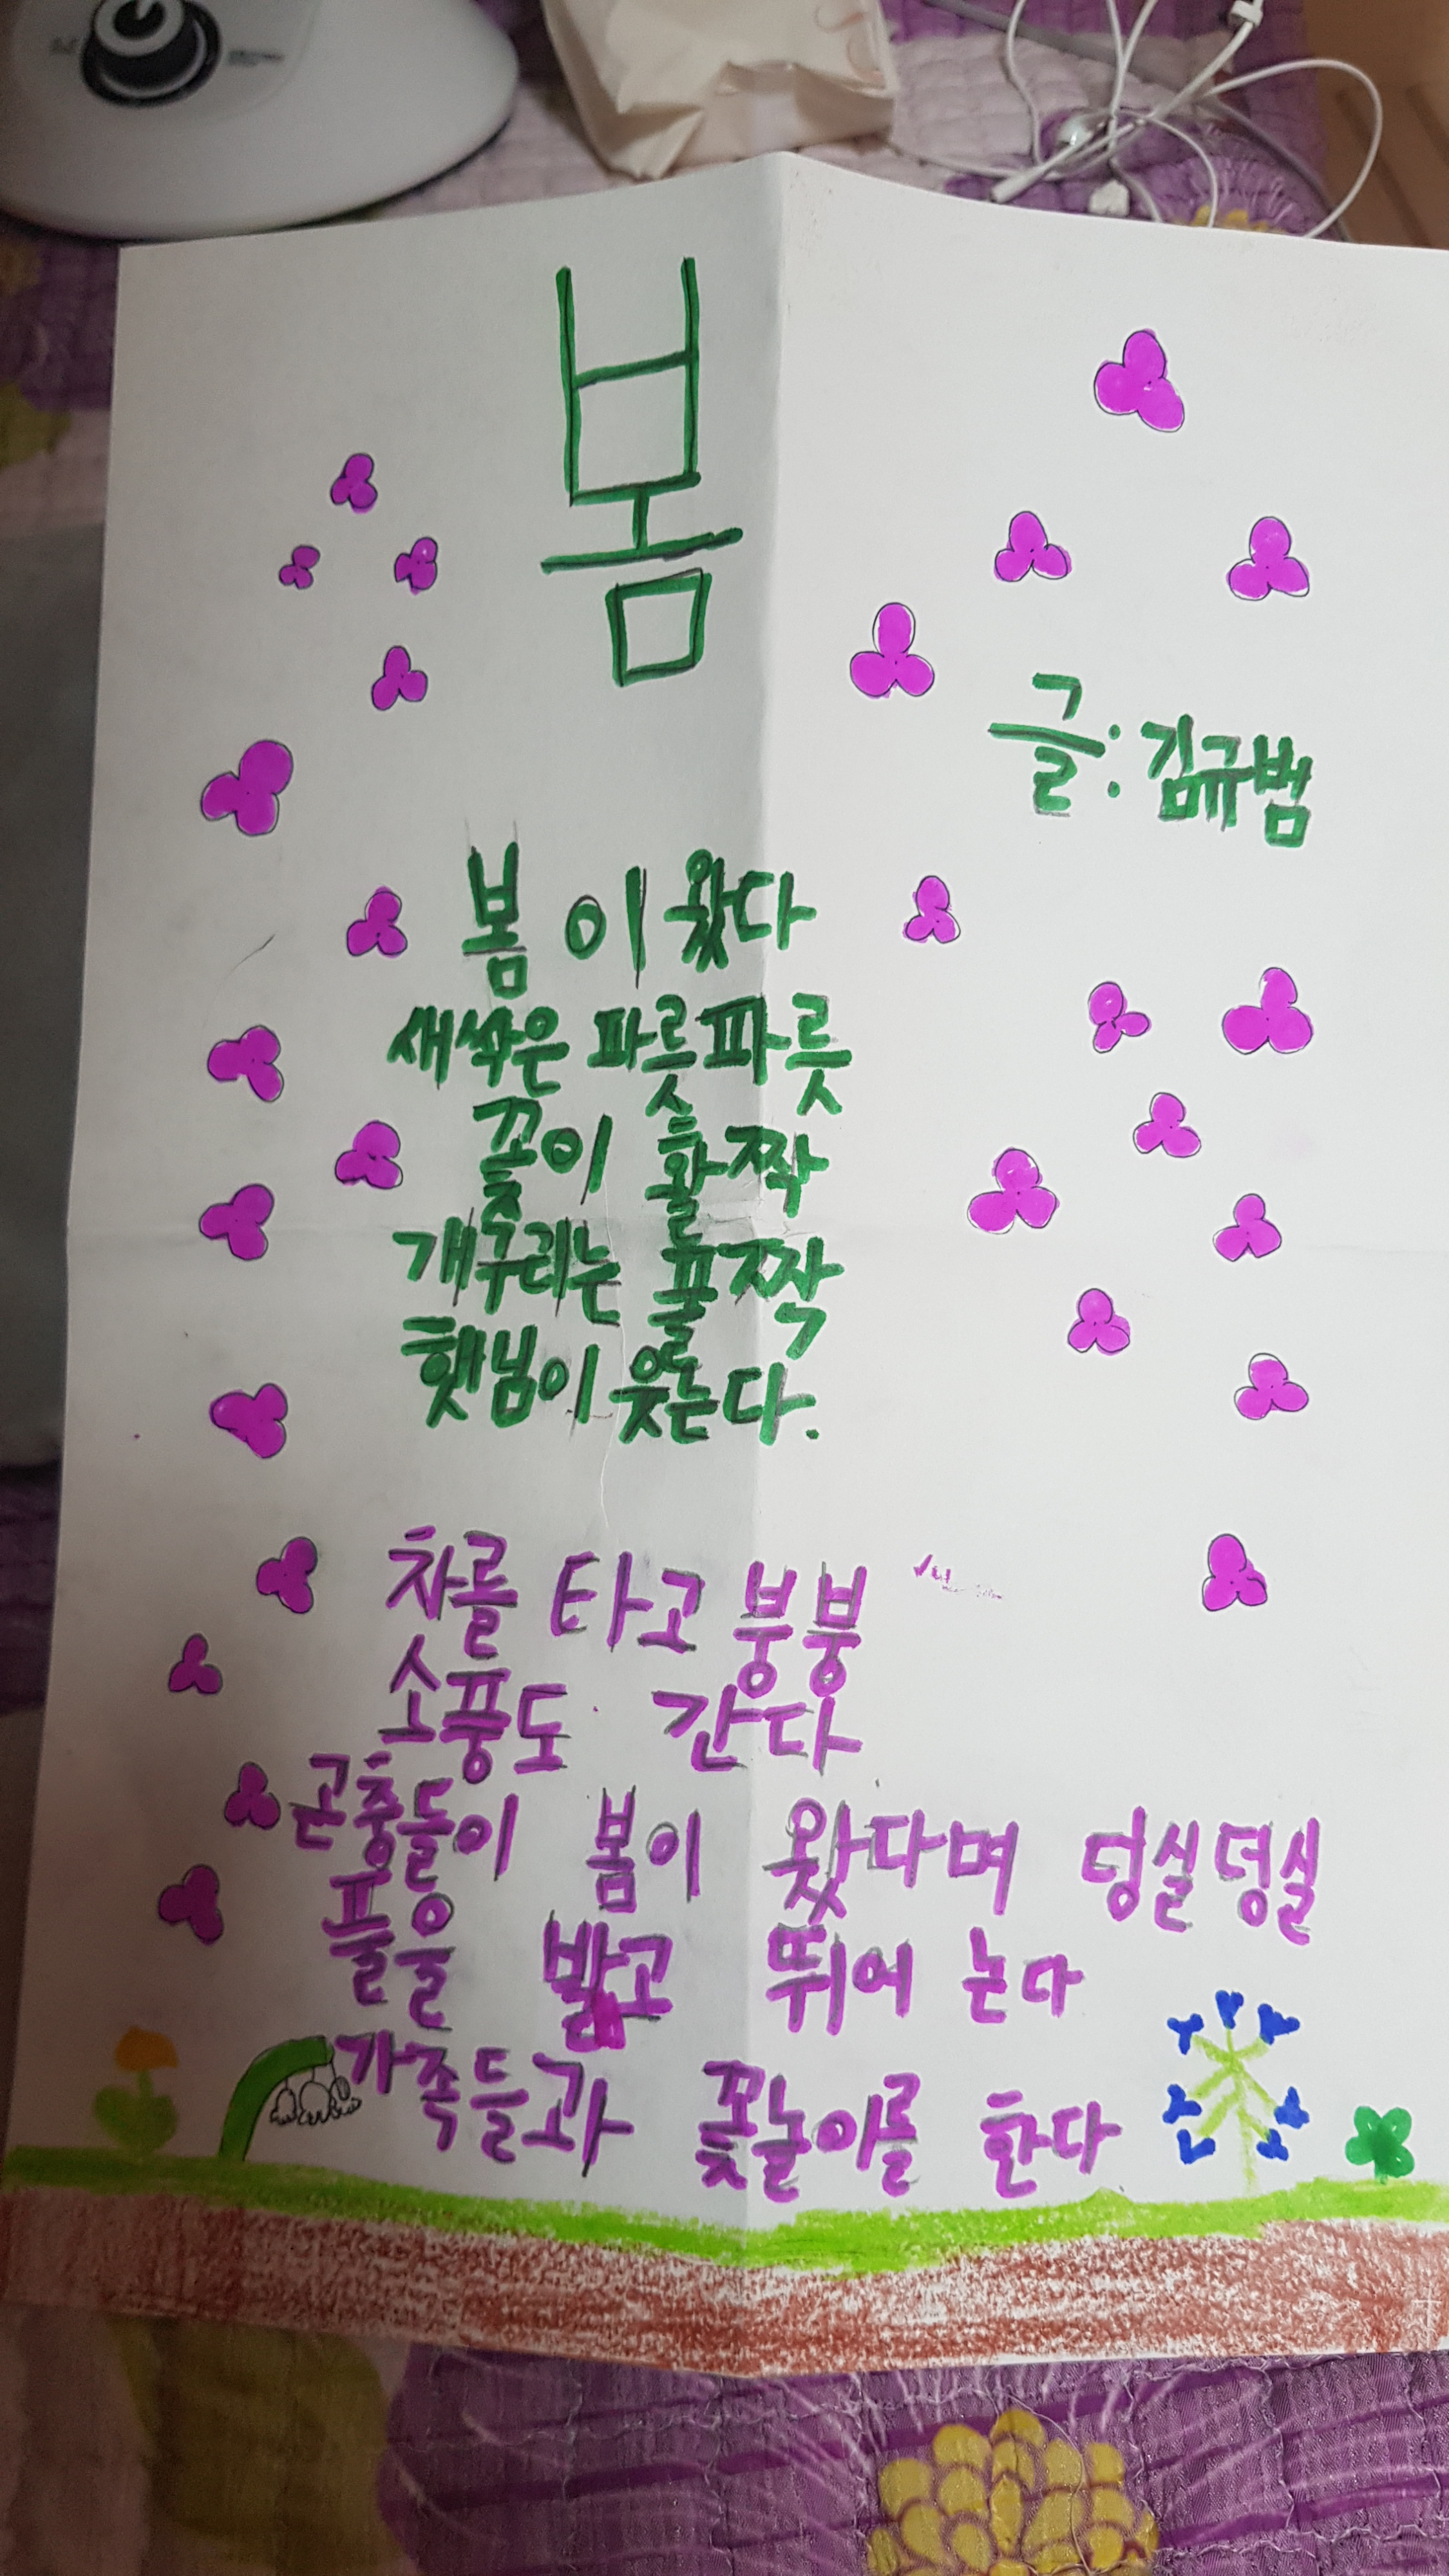 봄
글: 김규범
봄이 왔다
새싹은 파릇파릇
꽃이 활짝
개구리는 풀짝
햇님이 웃는다.
차를 타고 붕붕
소풍도 간다
곤충들이 봄이 왔다며 덩실덩실
풀을 밟고 뛰어 논다
가족들과 꽃놀이를 한다